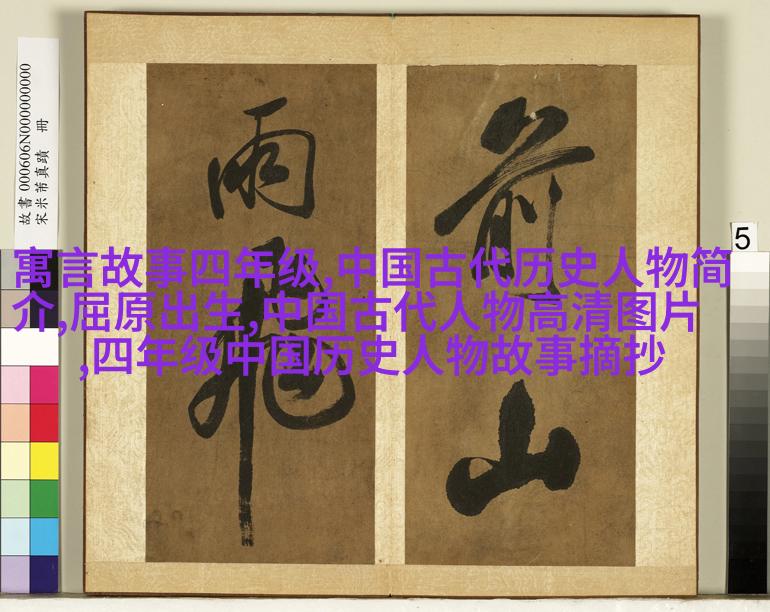 故書 000606N000000000
宋米芾真蹟 冊
前山
雨飛
5
寓言故事四年级,中国古代历史人物简
介,屈原出生,中国古代人物高清图片
,四年级中国历史人物故事摘抄